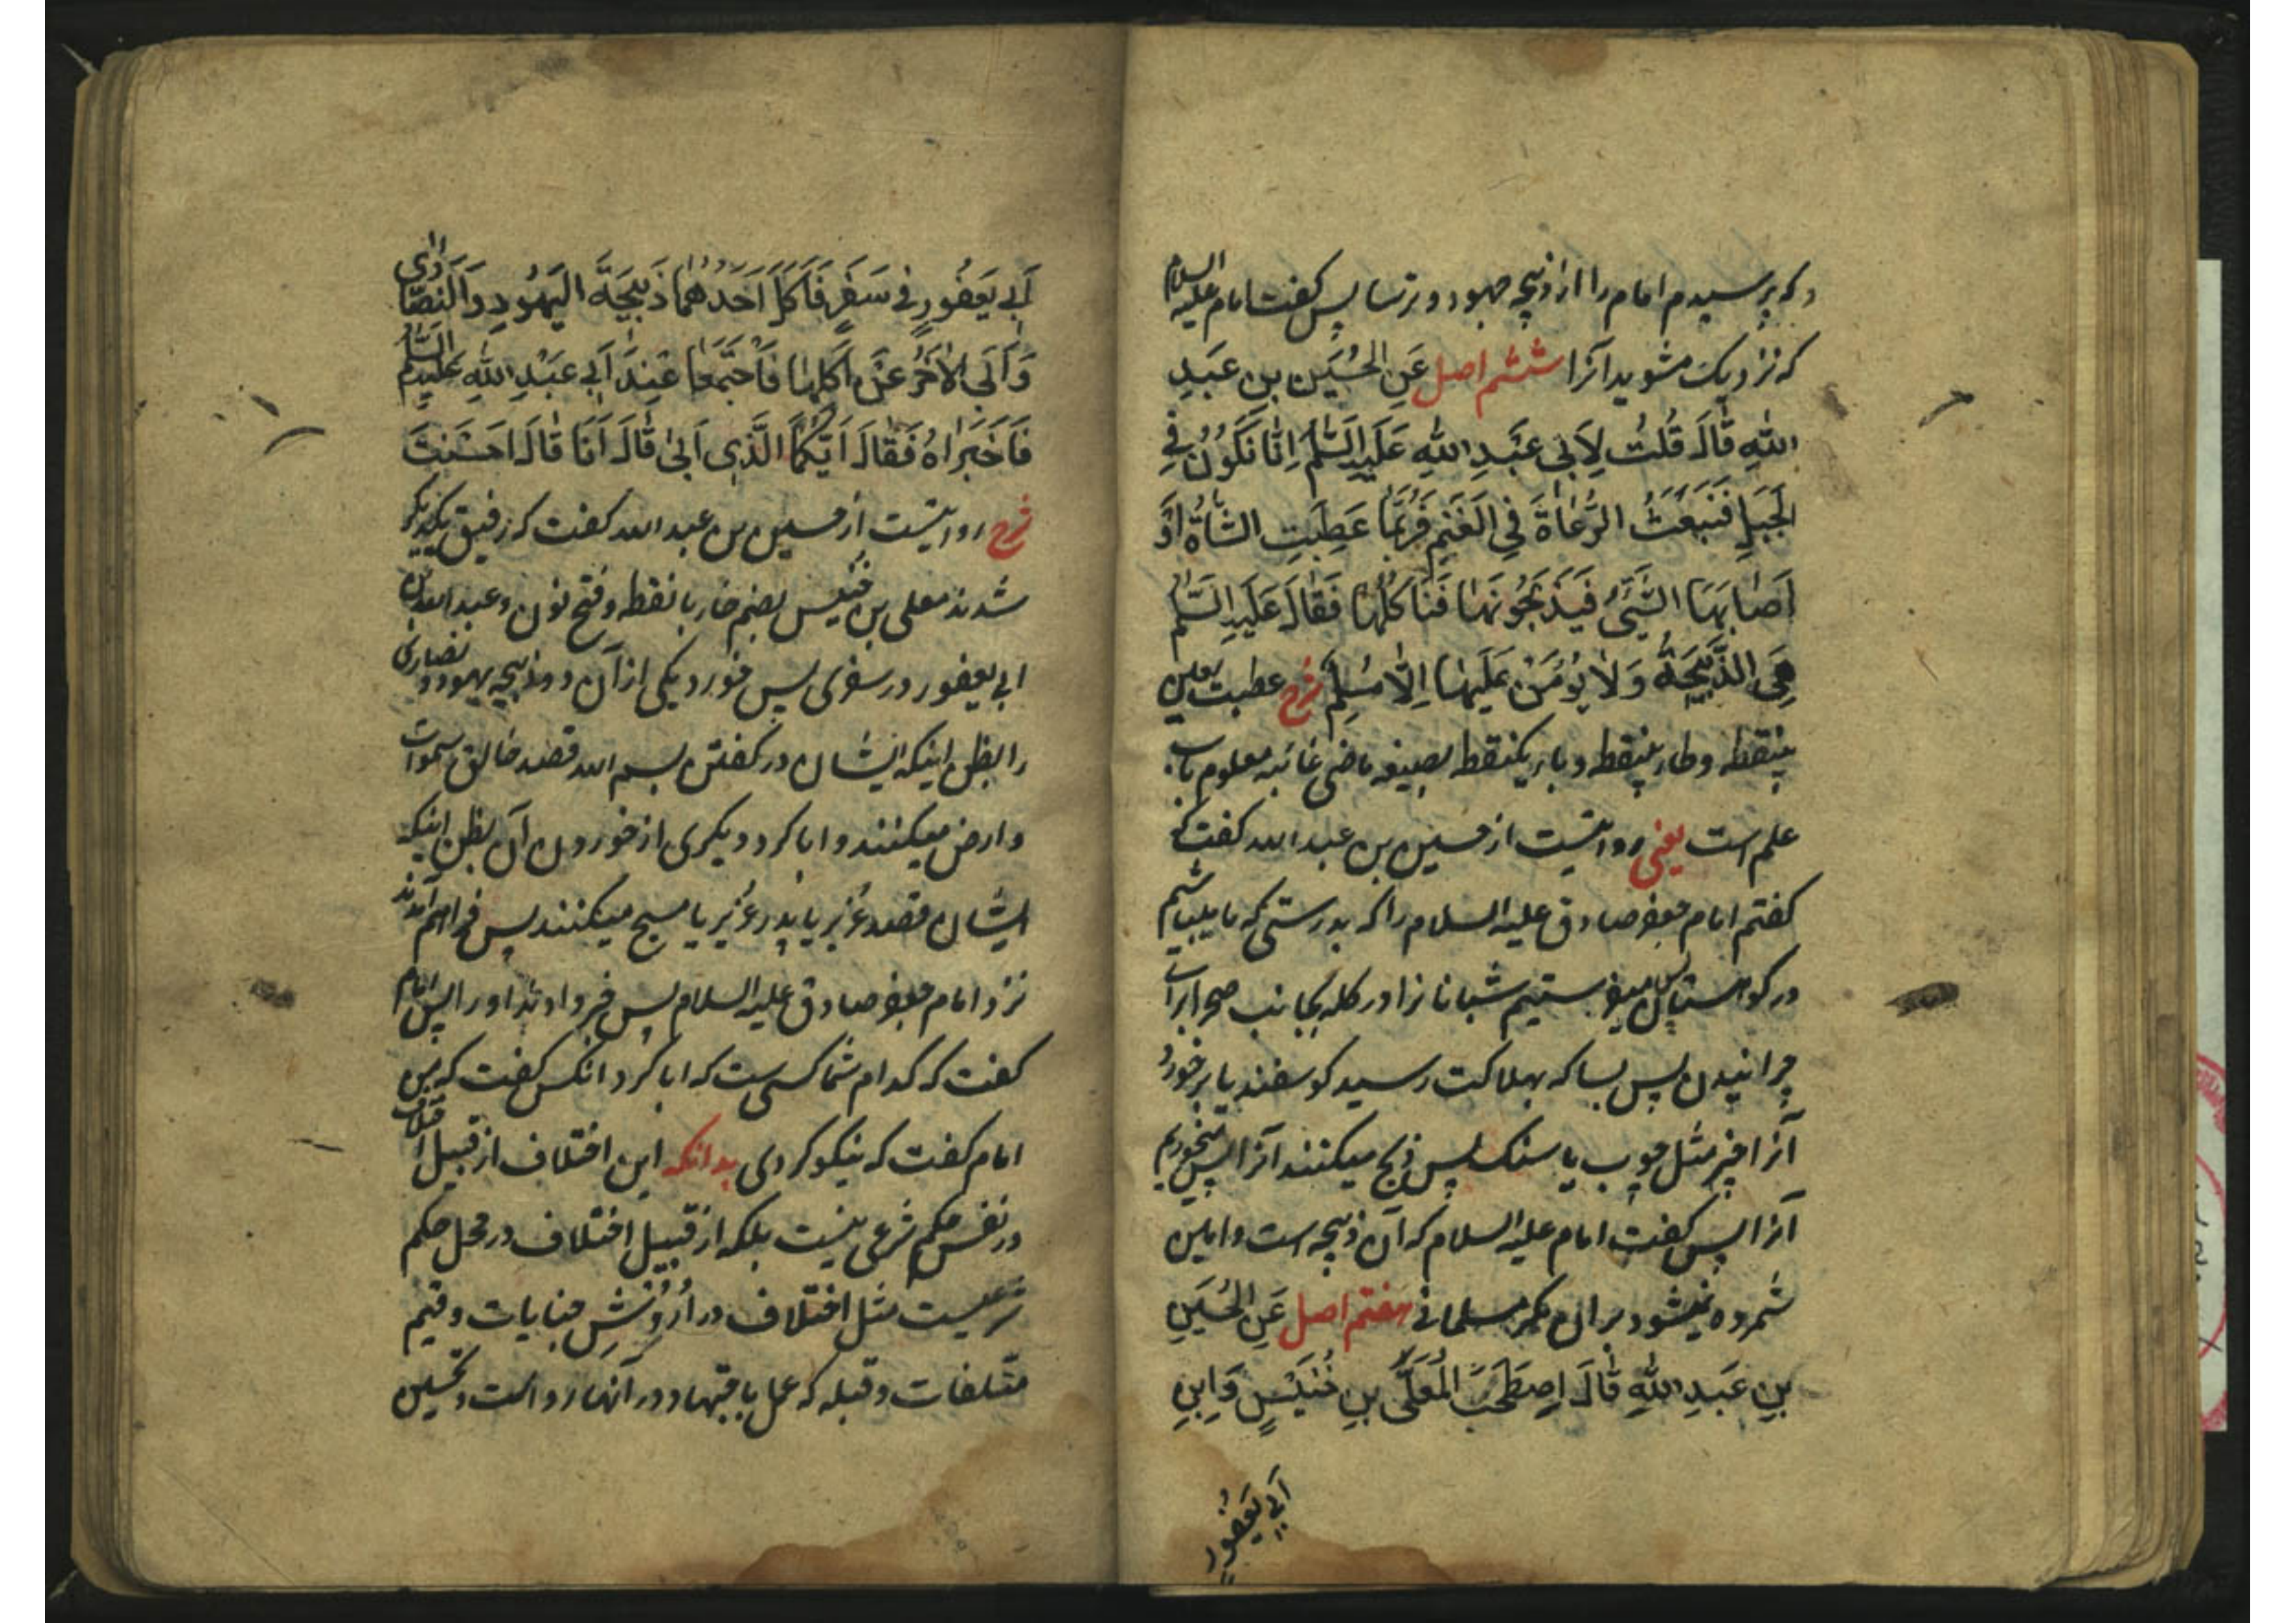 و که پرسیدم امام را از ذبیحه جهود و ترسا پس گفت امام علیه السلام
که نزدیک مشوید آنرا ششم اصل عَنِ الْحُسَیْنِ بنِ عَبدِ
اللهِ قَالَ قُلْتُ لِاَبی عَبْدِ اللهِ عَلَیْهِ السَّلَم اِنَّا نَکُوُنُ فِی
الْجَبَلِ فَنَبْعَثُ الرُّعَاةَ فِی الْغَنَمِ فَرُبَّمَا عَطِبَتِ الشَّاةُ اَوْ
اَصَابَهَا الشَّیْءُ فَیَذْبَحُونَهَا فَنَأْکُلُهَا فَقَالَ عَلَیْهِ السَّلم
هِیَ الذَّبِیحَةُ وَلَا یُؤْمَنُ عَلَیْهَا اِلَّا مُسْلِم شرح عطبت بعین
بینقطه و طاء بینقطه و باء یکنقطه بصیغه ماضی غائبه معلوم باب
علم است یعنی روایتست از حسین بن عبد الله گفت که
گفتم امام جعفر صادق علیه السلام را که بدرستی که ما میباشیم
در کوهستان پس میفرستیم شبانان را در گله بجانب صحرا برای
چرانیدن پس بسا که بهلاکت رسید گوسفند یا برخورد
آنرا چیز مثل چوب یا سنک پس ذبح میکنند آنرا پس میخوریم
آنرا پس گفت امام علیه السلام که آن ذبیحه است و امین
شمرده نمیشود بر ان مگر مسلمانی هفتم اصل عَنِ الْحُسَیْنِ
بنِ عَبدِ اللهِ قَالَ اِصطَحَبَ الْمُعَلَّی بنِ خُنَیْسٍ وَابنِ
اَبی یَعْفُورٍ
اَبی یَعْفُورٍ فی سَفَرٍ فَاَکَلَ اَحَدُهُمَا ذَبِیحَةَ الیَهُودِ وَالنَّصَارٰی
وَاَبَی الْاٰخَرُ عَنْ اَکْلِهَا فَاجْتَمَعَا عِندَ اَبی عَبْدِ اللهِ عَلَیْهِ السَّلم
فَاَخْبَرَاهُ فَقَالَ اَیُّکُمَا الَّذِی اَبیٰ قَالَ اَنَا قَالَ اَحْسَنْتَ
شرح روایتست از حسین بن عبد الله گفت که رفیق یکدیگر
شدند معلی بن خنیس بضم خاء با نقطه و فتح نون و عبد الله بن
ابی یعفور در سفری پس خورد یکی از آن دو ذبیحه یهود و نصاری
را بظن اینکه ایشان در گفتن بسم الله قصد خالق سموات
و ارض میکنند و ابا کرد دیگری از خوردن آن بظن اینکه
ایشان قصد عُزیر یا پدر عُزیر یا مسیح میکنند پس فراهم آمدند
نزد امام جعفر صادق علیه السلام پس خبر دادند او را پس امام
گفت که کدام شما کسیست که ابا کرد انکس گفت که من
امام گفت که نیکو کردی بدانکه این اختلاف از قبیل اختلاف
در نفس حکم شرعی نیست بلکه از قبیل اختلاف در محل حکم
شرعیست مثل اختلاف در اُرُوُش جنایات و قیم
متلفات و قبله که عمل باجتهاد در آنها رواست و تحسین